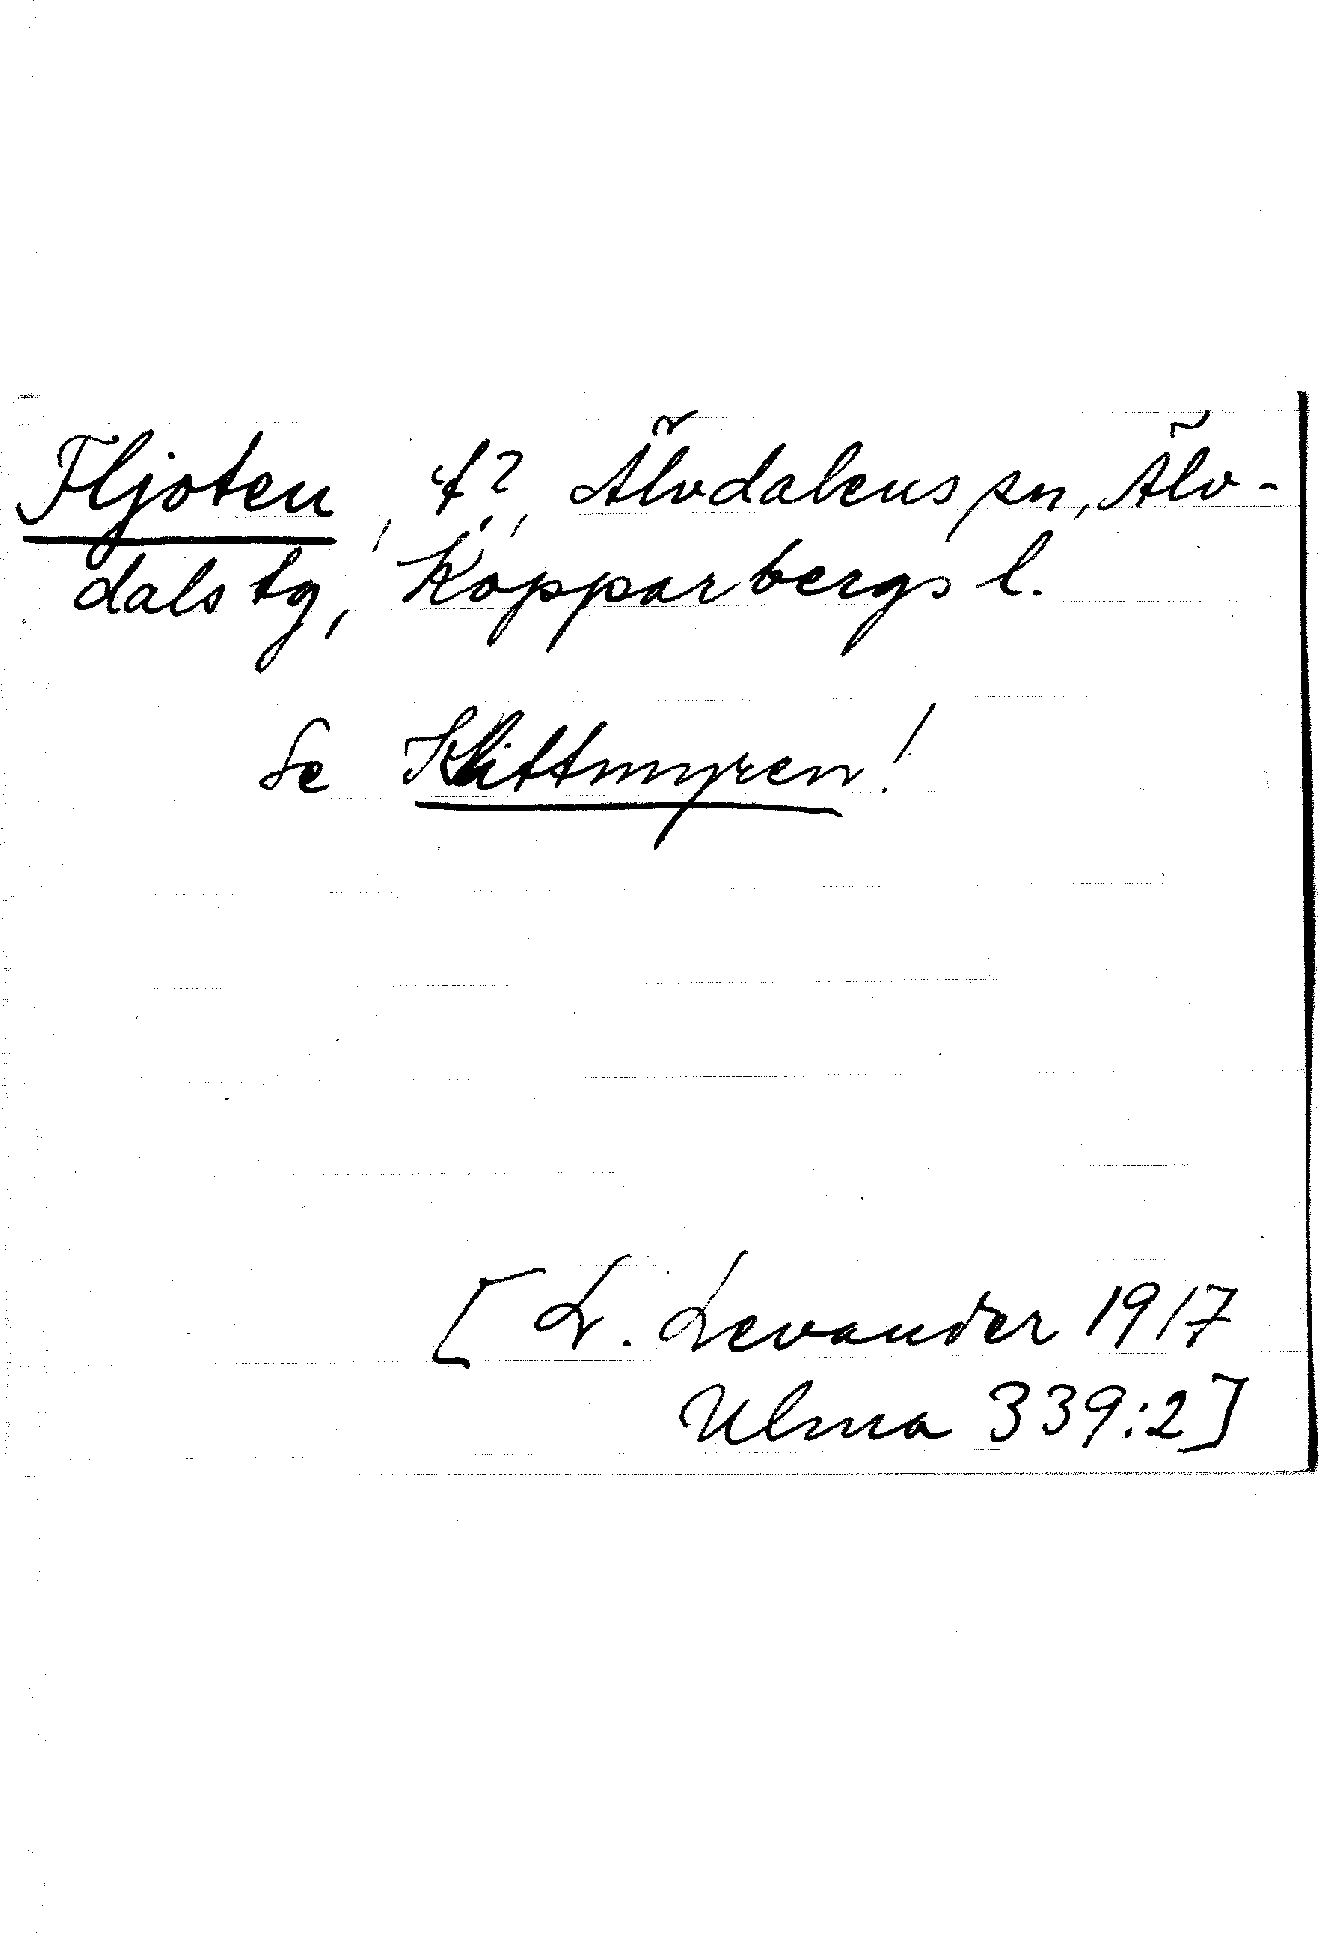 Fljoten, t.?, Älvdalens sn, Älv-
dals tg, Kopparbergs l.
Se Klittmyren!
[L. Levander 1917
Ulma 339:2]